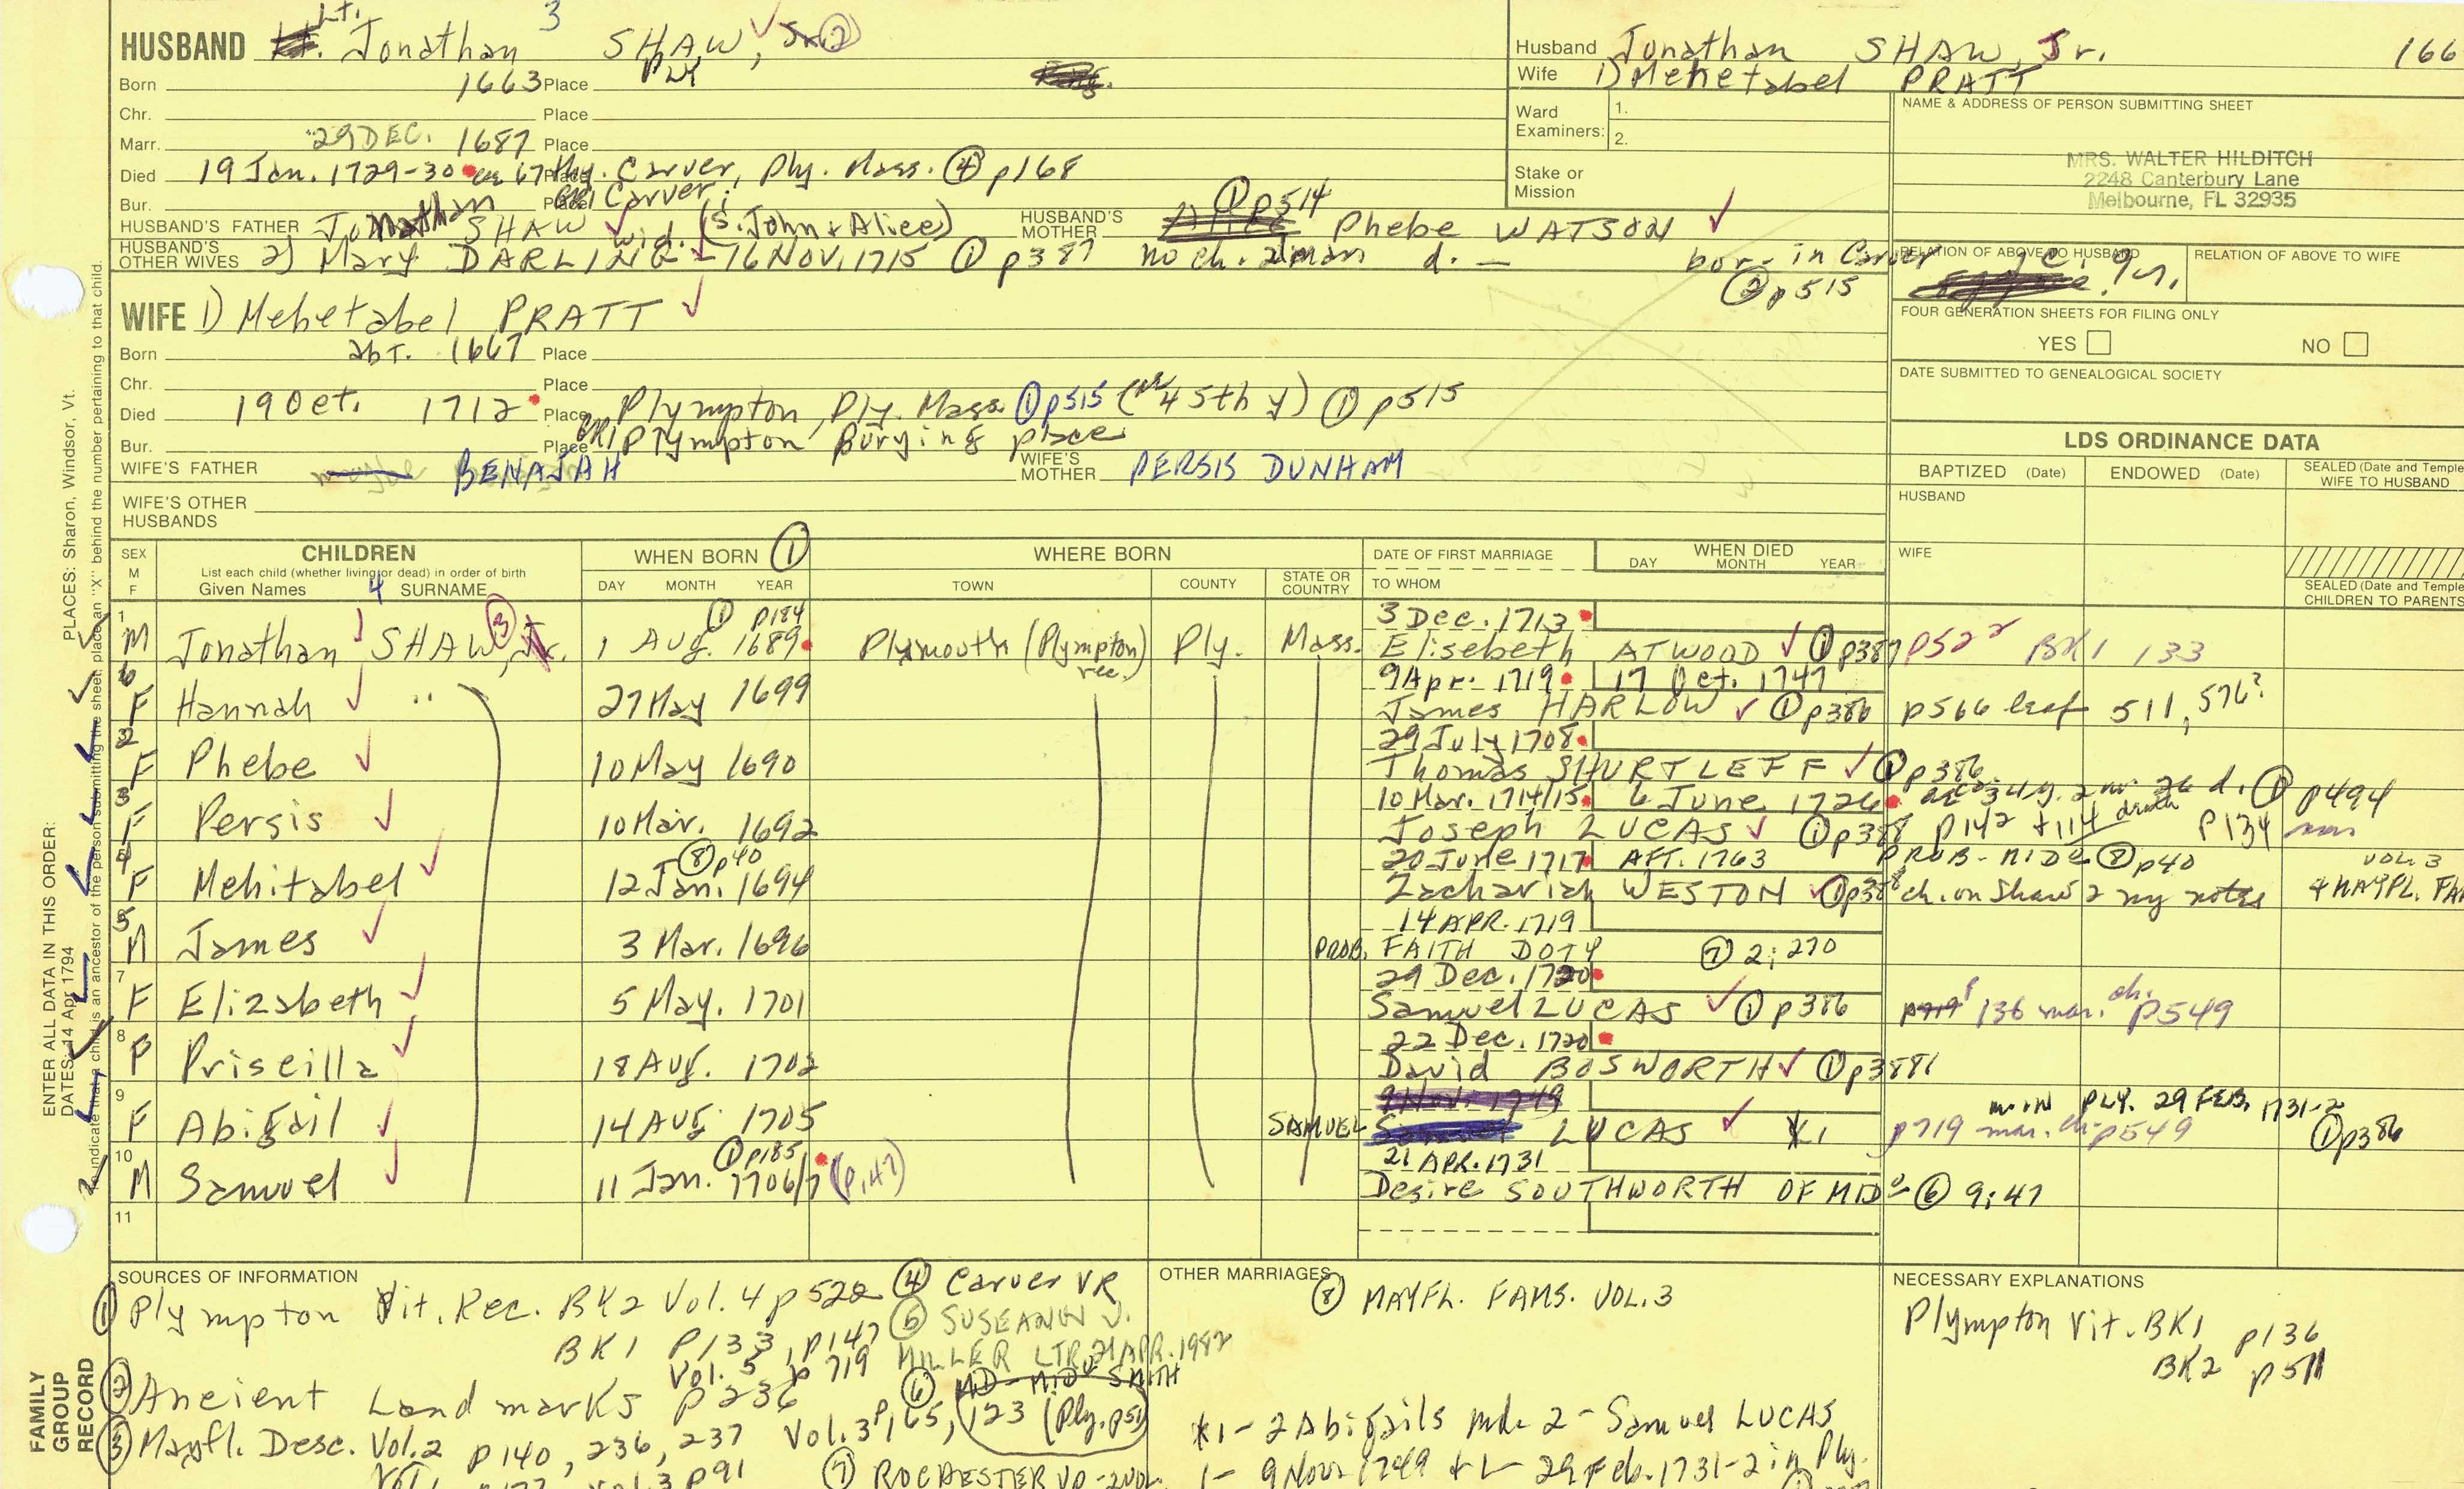 HUSBAND Lt. Jonathan 3 SHAW,
Born 1663 Place Ply
Chr. Place
Marr. 29 DEC. 1687 Place
Died 19 Jan. 1729-30 ae 67 Ply. Carver, Ply. Mass. ④ p168
Bur. Place Carver;
HUSBAND'S FATHER Jonathan SHAW (S. John & Alice) HUSBAND'S MOTHER ① p514 Phebe WATSON
HUSBAND'S OTHER WIVES 2) Mary DARLING - 16 NOV. 1715 ① p387 no ch. d. — bur- in Carver
② p515
WIFE 1) Mehetabel PRATT
Born abt. 1667 Place
Chr. Place
Died 19 Oct. 1712 Place Plympton, Ply. Mass ① p515 (ae 45th y) ① p515
Bur. Place Plympton Burying place
WIFE'S FATHER BENAJAH WIFE'S MOTHER PERSIS DUNHAM
WIFE'S OTHER HUSBANDS
Husband Jonathan SHAW, Jr. 166
Wife 1) Mehetabel PRATT
Ward Examiners: 1.
2.
Stake or Mission
NAME & ADDRESS OF PERSON SUBMITTING SHEET
MRS. WALTER HILDITCH
2248 Canterbury Lane
Melbourne, FL 32935
RELATION OF ABOVE TO HUSBAND RELATION OF ABOVE TO WIFE
FOUR GENERATION SHEETS FOR FILING ONLY
YES NO
DATE SUBMITTED TO GENEALOGICAL SOCIETY
LDS ORDINANCE DATA
BAPTIZED (Date) ENDOWED (Date) SEALED (Date and Temple
WIFE TO HUSBAND
HUSBAND
WIFE
SEALED (Date and Temple
CHILDREN TO PARENTS
SEX M F CHILDREN WHEN BORN ① WHERE BORN DATE OF FIRST MARRIAGE WHEN DIED
List each child (whether living or dead) in order of birth
Given Names 4 SURNAME DAY MONTH YEAR TOWN COUNTY STATE OR COUNTRY TO WHOM DAY MONTH YEAR
1 ① p184 3 Dec. 1713
M Jonathan SHAW ③ 1 Aug. 1689 Plymouth (Plympton rec.) Ply. Mass. Elisebeth ATWOOD ① p387 p522 BK1 133
6 9 Apr. 1719 17 Oct. 1747
F Hannah " 27 May 1699 James HARLOW ① p386 p566 leaf 511, 576?
2 29 July 1708
F Phebe 10 May 1690 Thomas SHURTLEFF ① p386
3 10 Mar. 1714/15 6 June 1726 34 y. 2 m. 26 d. ① p494
F Persis 10 Mar. 1692 Joseph LUCAS ① p388 p142 + 114 death p134 mar
4 ⑧ p40 20 June 1717 AFT. 1763 PROB- MIDo ⑧ p40 VOL. 3
F Mehitabel 12 Jan. 1694 Zachariah WESTON ① p388 ch. on Shaw 2 my notes + MAYFL. FA
5 14 APR. 1719
M James 3 Mar. 1696 PROB. FAITH DOTY ⑦ 2:270
7 29 Dec. 1720
F Elizabeth 5 May. 1701 Samuel LUCAS ① p386 136 mar. ch. p549
8 22 Dec. 1720
F Priscilla 18 Aug. 1702 David BOSWORTH ① p388
9 9 Nov. 1749 m. IN PLY. 29 FEB. 1731-2
F Abigail 14 Aug. 1705 SAMUEL LUCAS *1 p719 mar. ch. p549 ① p386
10 ① p185 21 APR. 1731
M Samuel 11 Jan. 1706/7 (p147) Desire SOUTHWORTH OF MIDo ⑥ 9:47
11
SOURCES OF INFORMATION
① Plympton Vit. Rec. BK2 Vol. 4 p 522
BK 1 P133, p147
Vol. 5 p 719
② Ancient Land marks p 236
③ Mayfl. Desc. Vol. 2 p 140, 236, 237 Vol. 3 p 165, 123 (Ply. p51)
Vol. 3 p91
④ Carver VR
⑤ SUSEANN V.
MILLER LTR 21 APR. 1982
⑥
⑦ ROCHESTER VR - 2 VOL.
OTHER MARRIAGES
⑧ MAYFL. FAMS. VOL. 3
*1 - 2 Abigails md. 2 - Samuel LUCAS
1 - 9 Nov. 1749 + 1 - 29 Feb. 1731-2 in Ply.
NECESSARY EXPLANATIONS
Plympton Vit. BK1 p136
BK2 p511
PLACES: Sharon, Windsor, Vt.
ENTER ALL DATA IN THIS ORDER:
DATES: 14 Apr 1794
To indicate that a child is an ancestor of the person submitting the sheet place an "X" behind the number pertaining to that child.
FAMILY
GROUP
RECORD